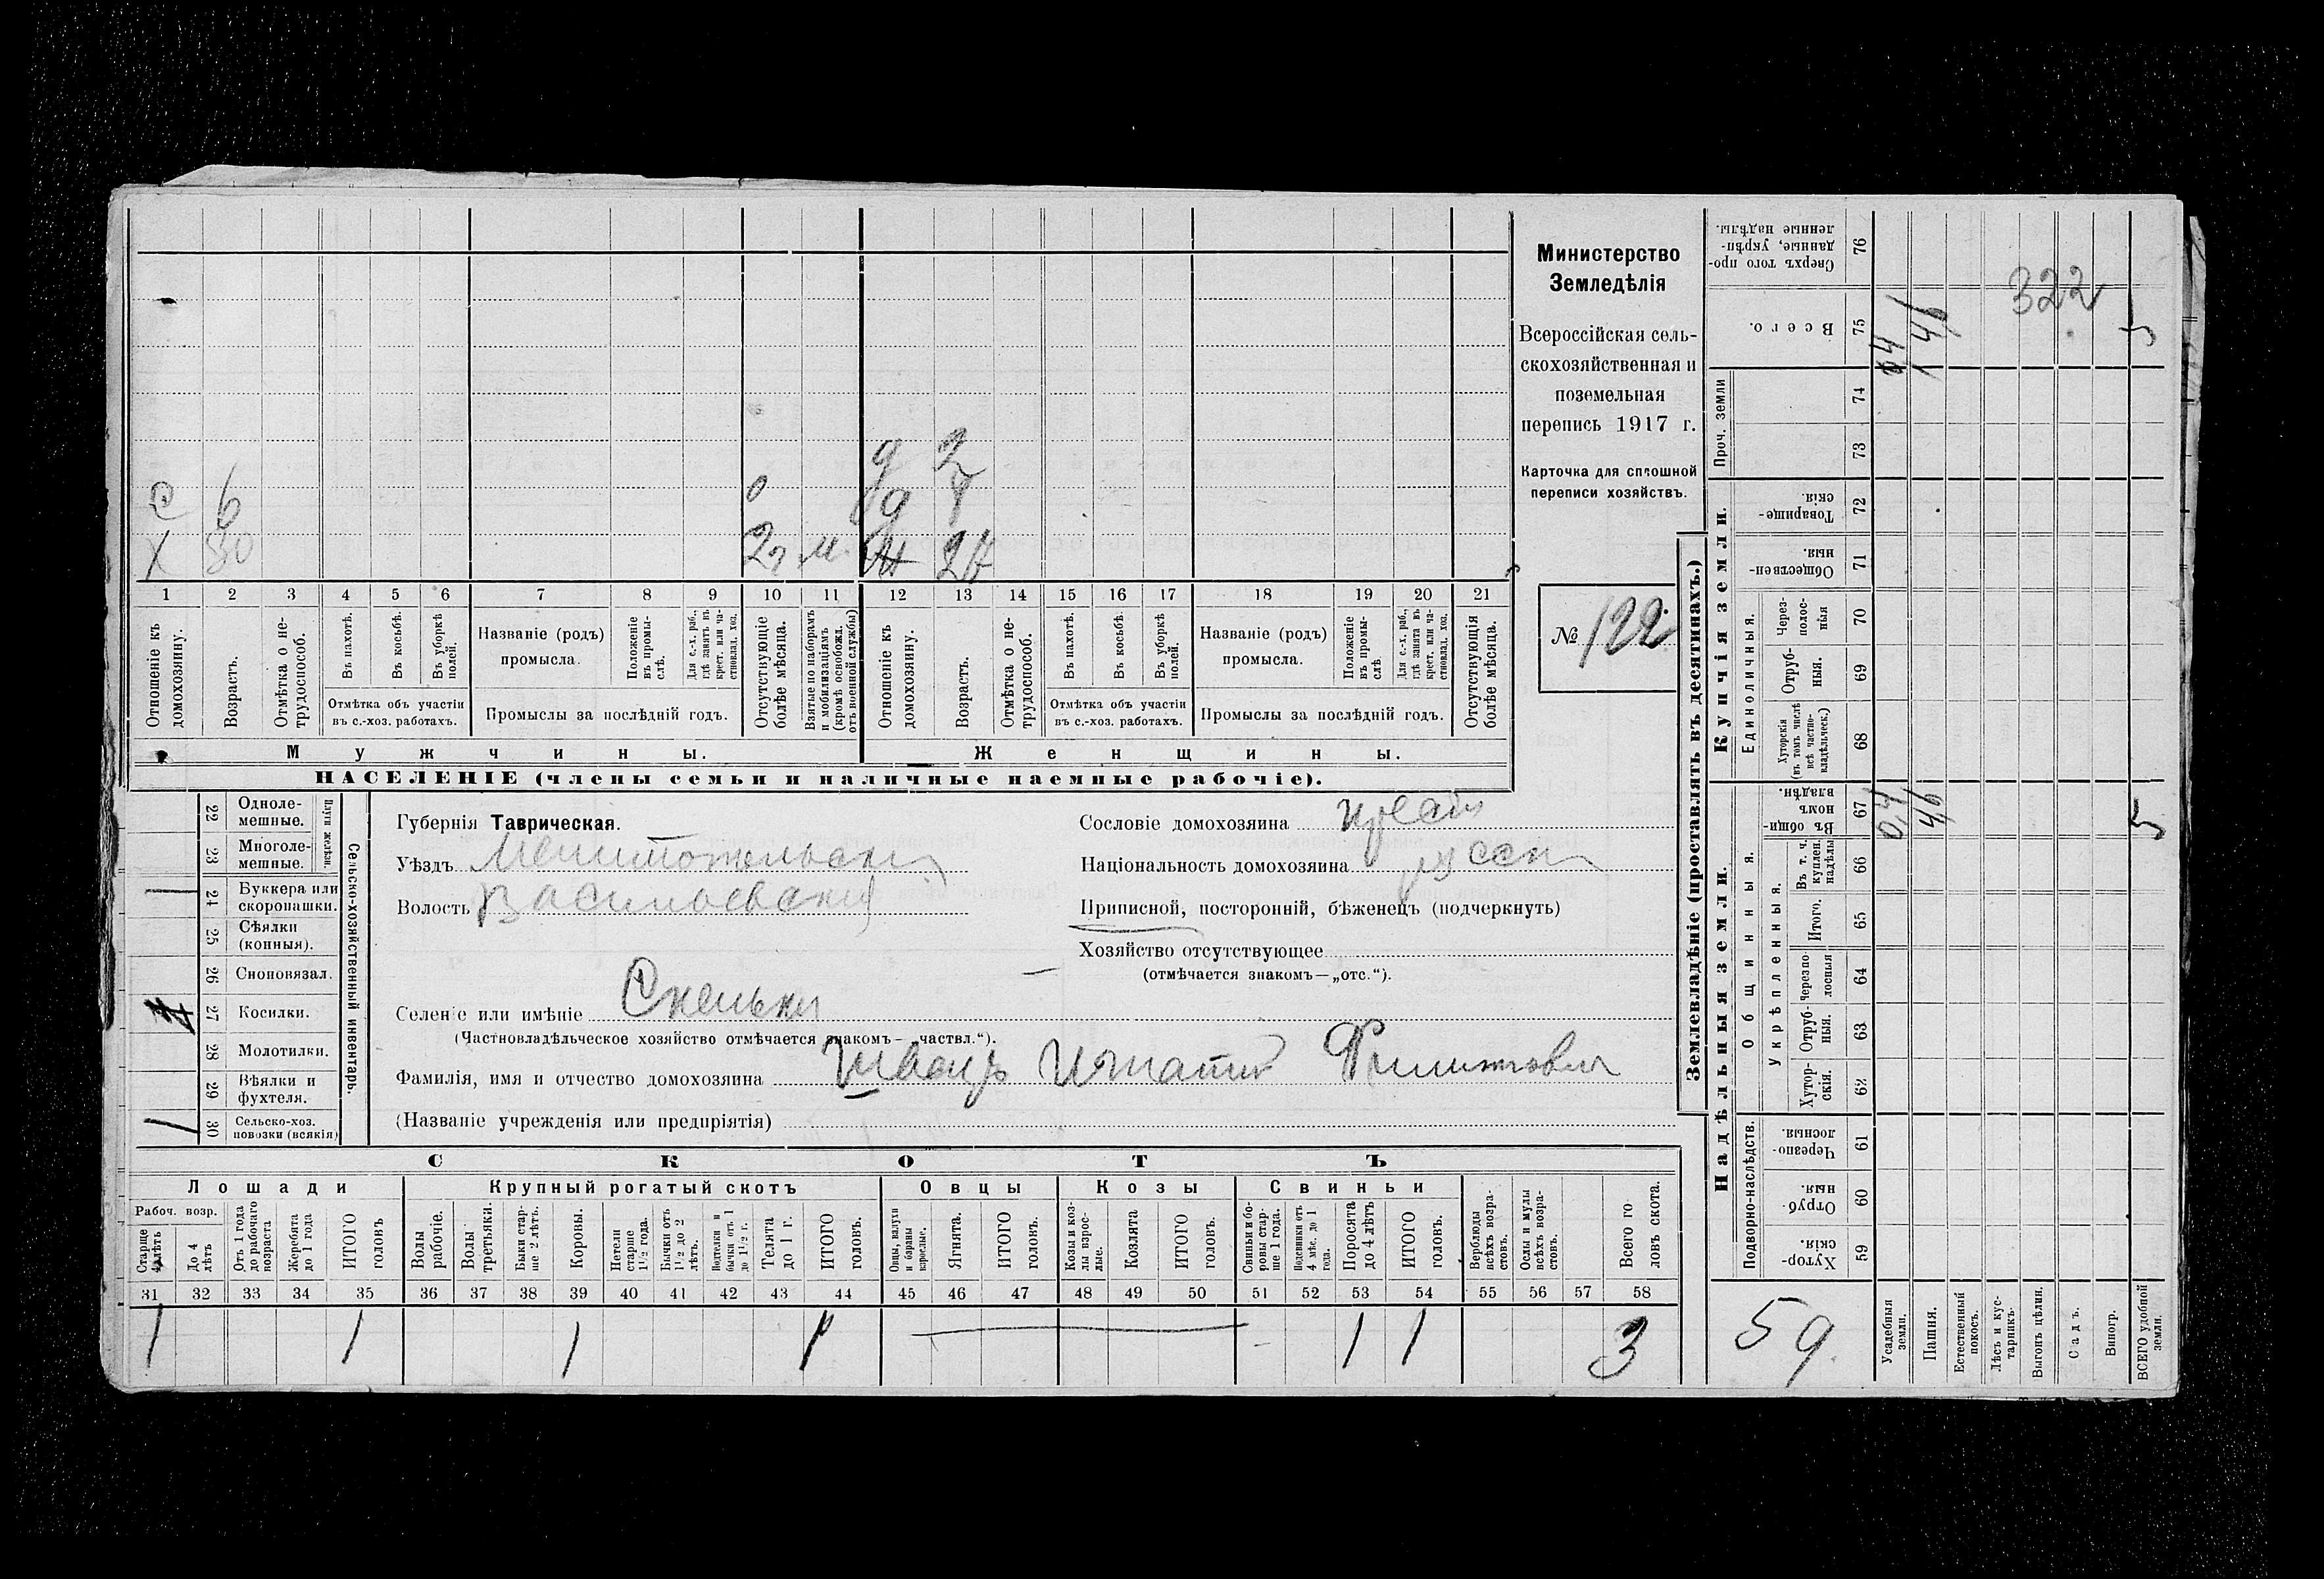 с 6 0 д 2
д 4
х 30 2 г м. ж 24
1 2 3 4 5 6 7 8 9 10 11 12 13 14 15 16 17 18 19 20 21
Отношеніе къ домохозяину.
Возрастъ.
Отмѣтка о не-трудоспособ.
Въ пахотѣ.
Въ косьбѣ.
Въ уборкѣ полей.
Отмѣтка объ участіи
въ с.-хоз. работахъ.
Названіе (родъ)
промысла.
Положеніе въ промы-слѣ.
Для с.-х. раб., гдѣ занятъ въ крест. или ча-стновлад. хоз.
Промыслы за послѣдній годъ.
Отсутствующіе болѣе мѣсяца.
Взятые по наборамъ и мобилизаціямъ (кромѣ освобожд. отъ военной службы)
Отношеніе къ домохозяину.
Возрастъ.
Отмѣтка о не-трудоспособ.
Въ пахотѣ.
Въ косьбѣ.
Въ уборкѣ полей.
Отмѣтка объ участіи
въ с.-хоз. работахъ.
Названіе (родъ)
промысла.
Положеніе въ промы-слѣ.
Для с.-х. раб., гдѣ занята въ крест. или ча-стновлад. хоз.
Промыслы за послѣдній годъ.
Отсутствующія болѣе мѣсяца.
Мужчины.
Женщины.
НАСЕЛЕНІЕ (члены семьи и наличные наемные рабочіе).
Министерство
Земледѣлія
Всероссійская сель-
скохозяйственная и
поземельная
перепись 1917 г.
Карточка для сплошной
переписи хозяйствъ.
№ 122
Плуги желѣзн.
22 Одноле-мешные.
23 Многоле-мешные.
24 Буккера или скоропашки.
25 Сѣялки (конныя).
26 Сноповязал.
27 Косилки.
28 Молотилки.
29 Вѣялки и фухтеля.
30 Сельско-хоз. повозки (всякія)
Сельско-хозяйственный инвентарь.
Губернія Таврическая.
Уѣздъ Мелитопольскій
Волость Васильевская
Сословіе домохозяина крест
Національность домохозяина русск
Приписной, посторонній, бѣженецъ (подчеркнуть)
Хозяйство отсутствующее
(отмѣчается знакомъ—„отс.“).
Селеніе или имѣніе Скельки
(Частновладѣльческое хозяйство отмѣчается знакомъ— „частвл.“).
Фамилія, имя и отчество домохозяина Швецъ Игнатій Филиповичъ
(Названіе учрежденія или предпріятія)
СКОТЪ
Лошади
Крупный рогатый скотъ
Овцы
Козы
Свиньи
Рабоч. возр.
Старше 4 лѣтъ
До 4 лѣтъ
Отъ 1 года до рабочаго возраста
Жеребята до 1 года
ИТОГО головъ
Волы рабочіе.
Волы третьяки.
Быки стар-ше 2 лѣтъ.
Коровы.
Нетели старше 1½ года.
Бычки отъ 1½ до 2 лѣтъ.
Подтелки и бычки отъ 1 до 1½ г.
Телята до 1 г.
ИТОГО головъ.
Овцы, валухи и бараны взрослые.
Ягнята.
ИТОГО головъ.
Козы и коз-лы взрос-лые.
Козлята
ИТОГО головъ.
Свиньи и бо-ровы стар-ше 1 года.
Подсвинки отъ 4 мѣс. до 1 года.
Поросята до 4 лѣтъ
ИТОГО головъ.
Верблюды всѣхъ возра-стовъ.
Ослы и мулы всѣхъ возра-стовъ.
Всего го-ловъ скота.
31 32 33 34 35 36 37 38 39 40 41 42 43 44 45 46 47 48 49 50 51 52 53 54 55 56 57 58
1 1 1 1 — - 1 1 3
Землевладѣніе (проставлять въ десятинахъ.)
Купчія земли.
Надѣльныя земли.
76 Сверхъ того про-данные, укрѣп-ленные надѣлы.
75 Всего.
Проч. земли
74
73
72 Товарище-скія.
71 Обществен-ныя.
Единоличныя.
70 Через-полос-ныя
69 Отруб-ныя.
68 Хуторскія (въ томъ числѣ всѣ частно-владѣльческ.)
Общинныя.
67 Въ общин-номъ владѣн.
Укрѣпленныя.
66 Въ т. ч. куплен. надѣлы
65 Итого.
64 Черезпо-лосныя
63 Отруб-ныя.
62 Хутор-скія.
Подворно-наслѣдств.
61 Черезпо-лосныя.
60 Отруб-ныя.
59 Хутор-скія.
322
0,4
4,6
5
59.
Усадебная земля.
Пашня.
Естественный покосъ.
Лѣсъ и кус-тарникъ.
Выгонъ цѣлин.
Садъ.
Виногр.
ВСЕГО удобной земли.